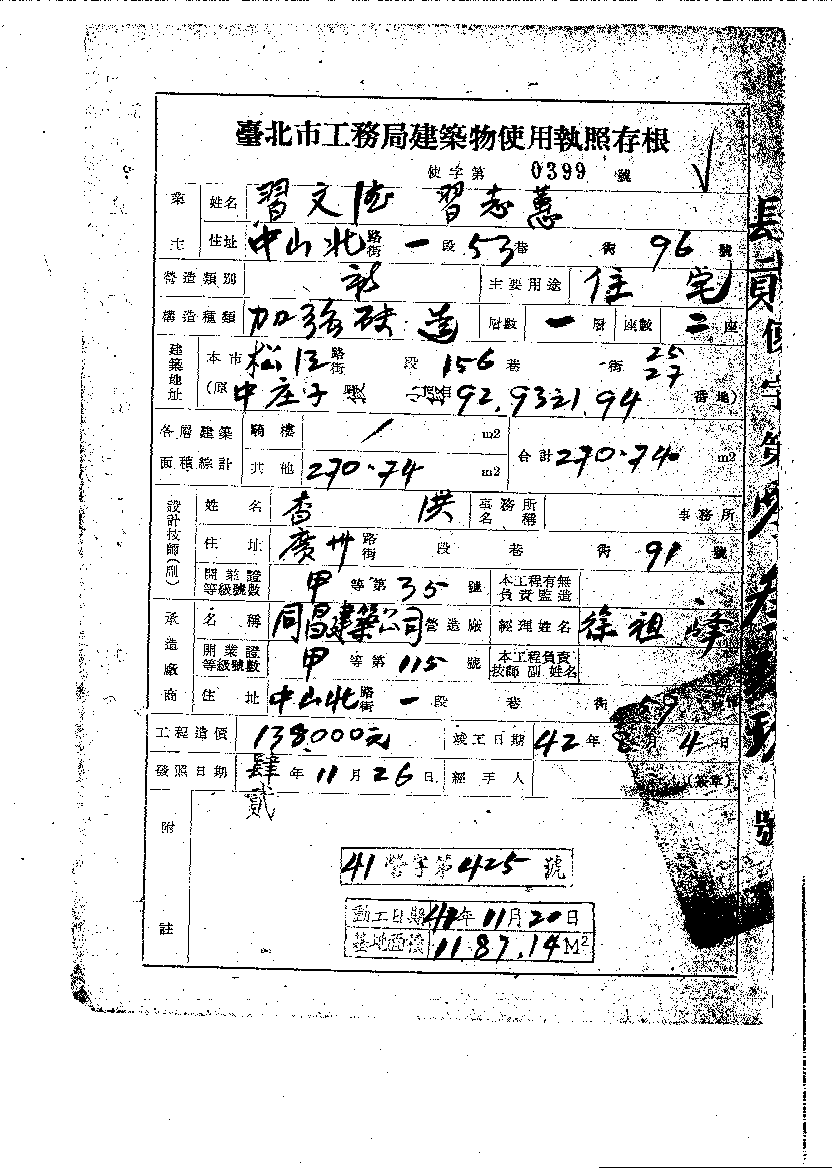 臺北市工務局建築物使用執照存根
使字第 0399 號
業主 姓名 習文德 習志蕙
住址 中山北 路街 一 段 53 巷 街 96 號
營造類別 新 主要用途 住宅
構造種類 加強磚造 層數 一 層 座數 二 座
建築地址 本市 松江 路街 段 156 巷 街 25 27
(原 中庄子 段 92,93之1,94 番地)
各層建築面積總計 騎樓 / m2 合計 270.74 m2
其他 270.74 m2
設計技師(副) 姓名 李洪 事務所名稱 事務所
住址 廣州 路街 段 巷 街 91 號
開業證等級號數 甲 等第 35 號 本工程有無負責監造
承造廠商 名稱 同昌建築公司 營造廠 經理姓名 徐祖峰
開業證等級號數 甲 等第 115 號 本工程負責技師副姓名
住址 中山北 路街 一 段 巷 街 59
工程造價 138000元 竣工日期 42 年 8 月 4 日
發照日期 肆貳 年 11 月 26 日 經手人 (蓋章)
附註
41 營字第 425 號
動工日期 41年11月20日
基地面積 1187.14 M2